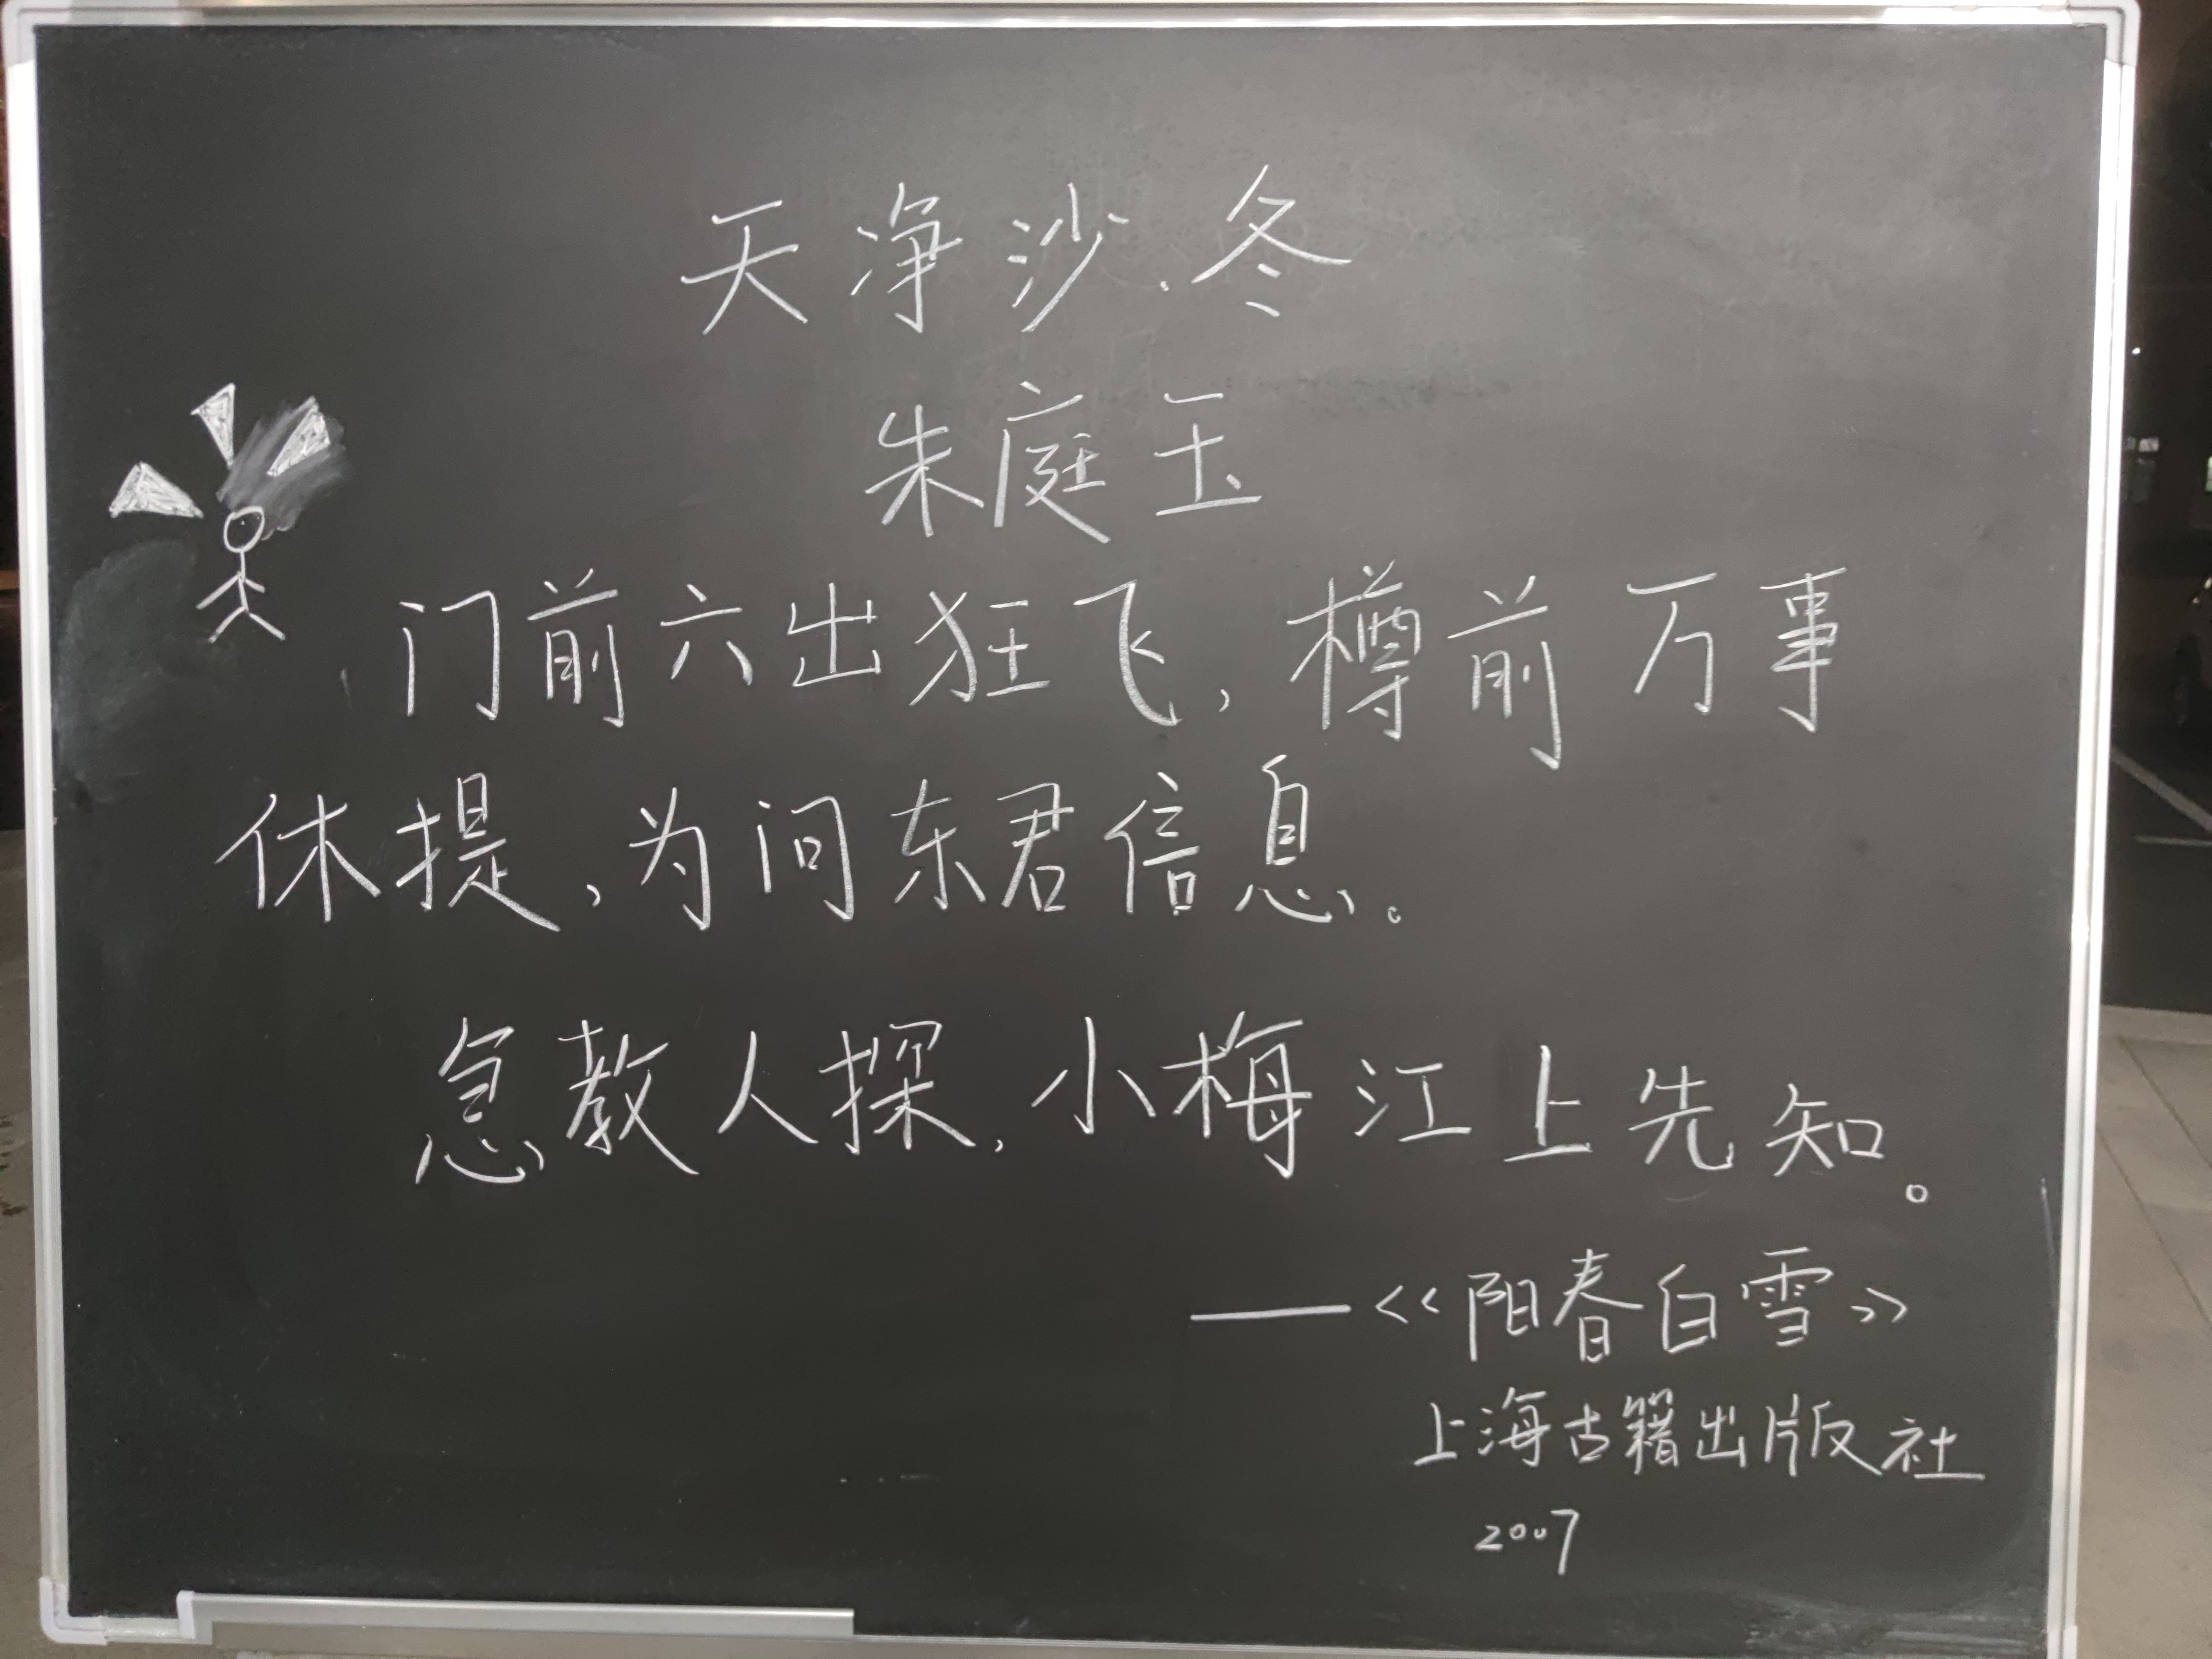 天净沙·冬
朱庭玉
门前六出狂飞,樽前万事
休提,为问东君信息。
急教人探,小梅江上先知。
——<<阳春白雪>>
上海古籍出版社
2007